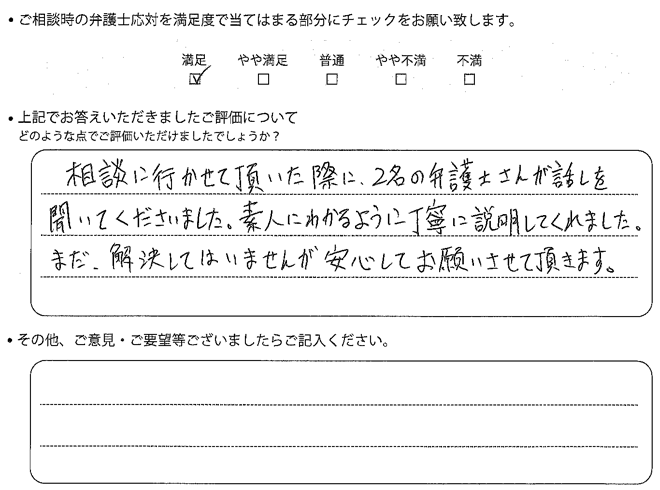 • ご相談時の弁護士応対を満足度で当てはまる部分にチェックをお願い致します。
満足 やや満足 普通 やや不満 不満
☑ ☐ ☐ ☐ ☐
• 上記でお答えいただきましたご評価について
どのような点でご評価いただけましたでしょうか？
相談に行かせて頂いた際に、2名の弁護士さんが話しを
聞いてくださいました。素人にわかるように丁寧に説明してくれました。
まだ、解決してはいませんが安心してお願いさせて頂きます。
• その他、ご意見・ご要望等ございましたらご記入ください。